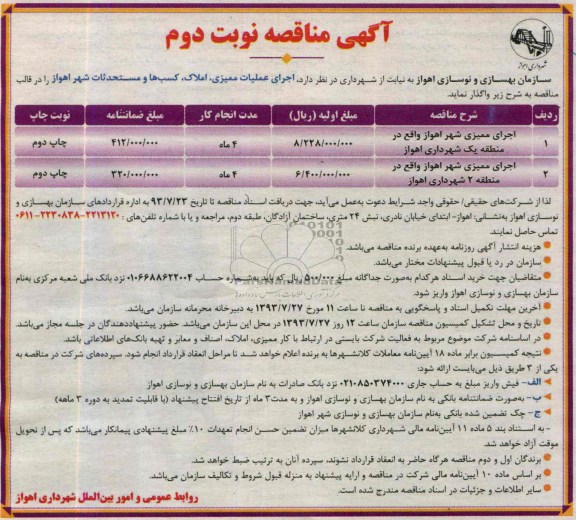 آگهی مناقصه نوبت دوم
شهرداری اهواز
سازمان بهسازی و نوسازی اهواز به نیابت از شهرداری در نظر دارد، اجرای عملیات ممیزی، املاک، کسب‌ها و مستحدثات شهر اهواز را در قالب
مناقصه به شرح زیر واگذار نماید.
ردیف شرح مناقصه مبلغ اولیه (ریال) مدت انجام کار مبلغ ضمانتنامه نوبت چاپ
۱ اجرای ممیزی شهر اهواز واقع در منطقه یک شهرداری اهواز ۸/۲۲۸/۰۰۰/۰۰۰ ۴ ماه ۴۱۲/۰۰۰/۰۰۰ چاپ دوم
۲ اجرای ممیزی شهر اهواز واقع در منطقه ۲ شهرداری اهواز ۶/۴۰۰/۰۰۰/۰۰۰ ۴ ماه ۳۲۰/۰۰۰/۰۰۰ چاپ دوم
لذا از شرکت‌های حقیقی/ حقوقی واجد شرایط دعوت به‌عمل می‌آید، جهت دریافت اسناد مناقصه تا تاریخ ۹۳/۷/۲۳ به اداره قراردادهای سازمان بهسازی و
نوسازی اهواز به‌نشانی: اهواز- ابتدای خیابان نادری، نبش ۲۴ متری، ساختمان آزادگان، طبقه دوم، مراجعه و یا با شماره تلفن‌های : ۲۲۱۳۱۲۰-۲۲۳۰۸۳۸-۰۶۱۱
تماس حاصل نمایند.
هزینه انتشار آگهی روزنامه به‌عهده برنده مناقصه می‌باشد.
سازمان در رد یا قبول پیشنهادات مختار می‌باشد.
متقاضیان جهت خرید اسناد هر کدام به‌صورت جداگانه مبلغ ۵۰۰/۰۰۰ ریال که باید به‌شماره حساب ۰۱۰۶۶۸۸۶۲۲۰۰۴ نزد بانک ملی شعبه مرکزی به‌نام
سازمان بهسازی و نوسازی اهواز واریز شود.
آخرین مهلت تکمیل اسناد و پاسخگویی به مناقصه تا ساعت ۱۱ مورخ ۱۳۹۳/۷/۲۷ به دبیرخانه محرمانه سازمان می‌باشد.
تاریخ و محل تشکیل کمیسیون مناقصه سازمان ساعت ۱۲ روز ۱۳۹۳/۷/۲۷ در محل این سازمان می‌باشد. حضور پیشنهاددهندگان در جلسه مجاز می‌باشد.
در اساسنامه شرکت موضوع مربوط به فعالیت شرکت بایستی در ارتباط با کار ممیزی، املاک، اصناف و معابر و تهیه بانک‌های اطلاعاتی باشد.
نتیجه کمیسیون برابر ماده ۱۸ آیین‌نامه معاملات کلانشهرها به برنده اعلام خواهد شد تا مراحل انعقاد قرارداد انجام شود. سپرده‌های شرکت در مناقصه به
یکی از ۳ طریق ذیل می‌بایست ارائه شود:
الف- فیش واریز مبلغ به حساب جاری ۰۲۱۰۸۵۰۳۷۴۰۰۰ نزد بانک صادرات به نام سازمان بهسازی و نوسازی اهواز
ب- به‌صورت ضمانتنامه بانکی به نام سازمان بهسازی و نوسازی اهواز و به مدت۳ ماه از تاریخ افتتاح پیشنهاد (با قابلیت تمدید به دوره ۳ ماهه)
ج- چک تضمین شده بانکی به‌نام سازمان بهسازی و نوسازی شهر اهواز
- به استناد بند ۵ ماده ۱۱ آیین‌نامه مالی شهرداری کلانشهرها میزان تضمین حسن انجام تعهدات ۱۰٪ مبلغ پیشنهادی پیمانکار می‌باشد که پس از تحویل
موقت آزاد خواهد شد.
برندگان اول و دوم مناقصه هرگاه حاضر به انعقاد قرارداد نشوند، سپرده آنان به ترتیب ضبط خواهد شد.
بر اساس ماده ۱۰ آیین‌نامه مالی شرکت در مناقصه و ارایه پیشنهاد به منزله قبول شروط و تکالیف سازمان می‌باشد.
سایر اطلاعات و جزئیات در اسناد مناقصه مندرج شده است.
روابط عمومی و امور بین‌الملل شهرداری اهواز